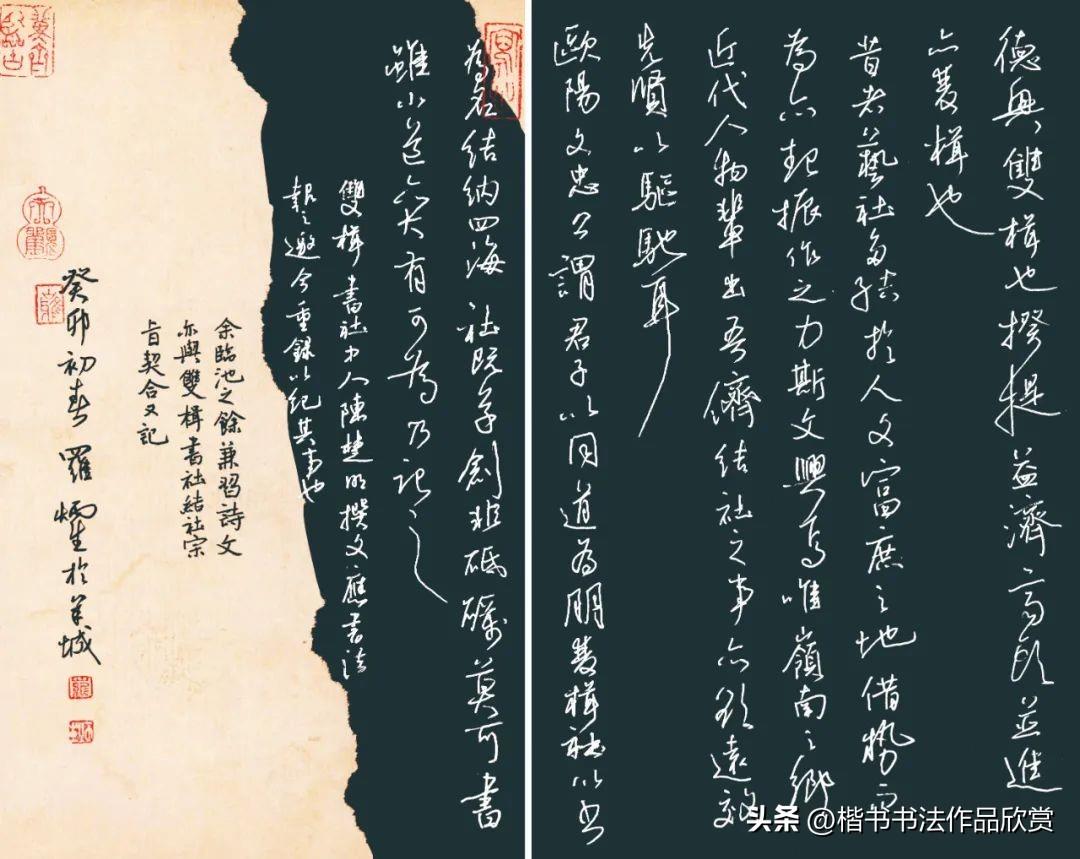 德與雙楫也揆提益濟高欣並進
亦雙楫也
昔者藝社多結於人文富庶之地借勢而
為亦起振作之力斯文興焉唯嶺南之鄉
近代人物輩出吾儕結社之事亦欲遠效
先賢以驅馳耳
歐陽文忠公謂君子以同道為朋雙楫社以書
為名結納四海社既草創非砥礪莫可書
雖小道亦大有可為乃記之
雙楫書社中人陳楚明撰文應書法
報之邀今重錄以紀其事也
余臨池之餘兼習詩文
亦與雙楫書社結社宗
旨契合又記
癸卯初春 羅 於羊城
头条 @楷书书法作品欣赏